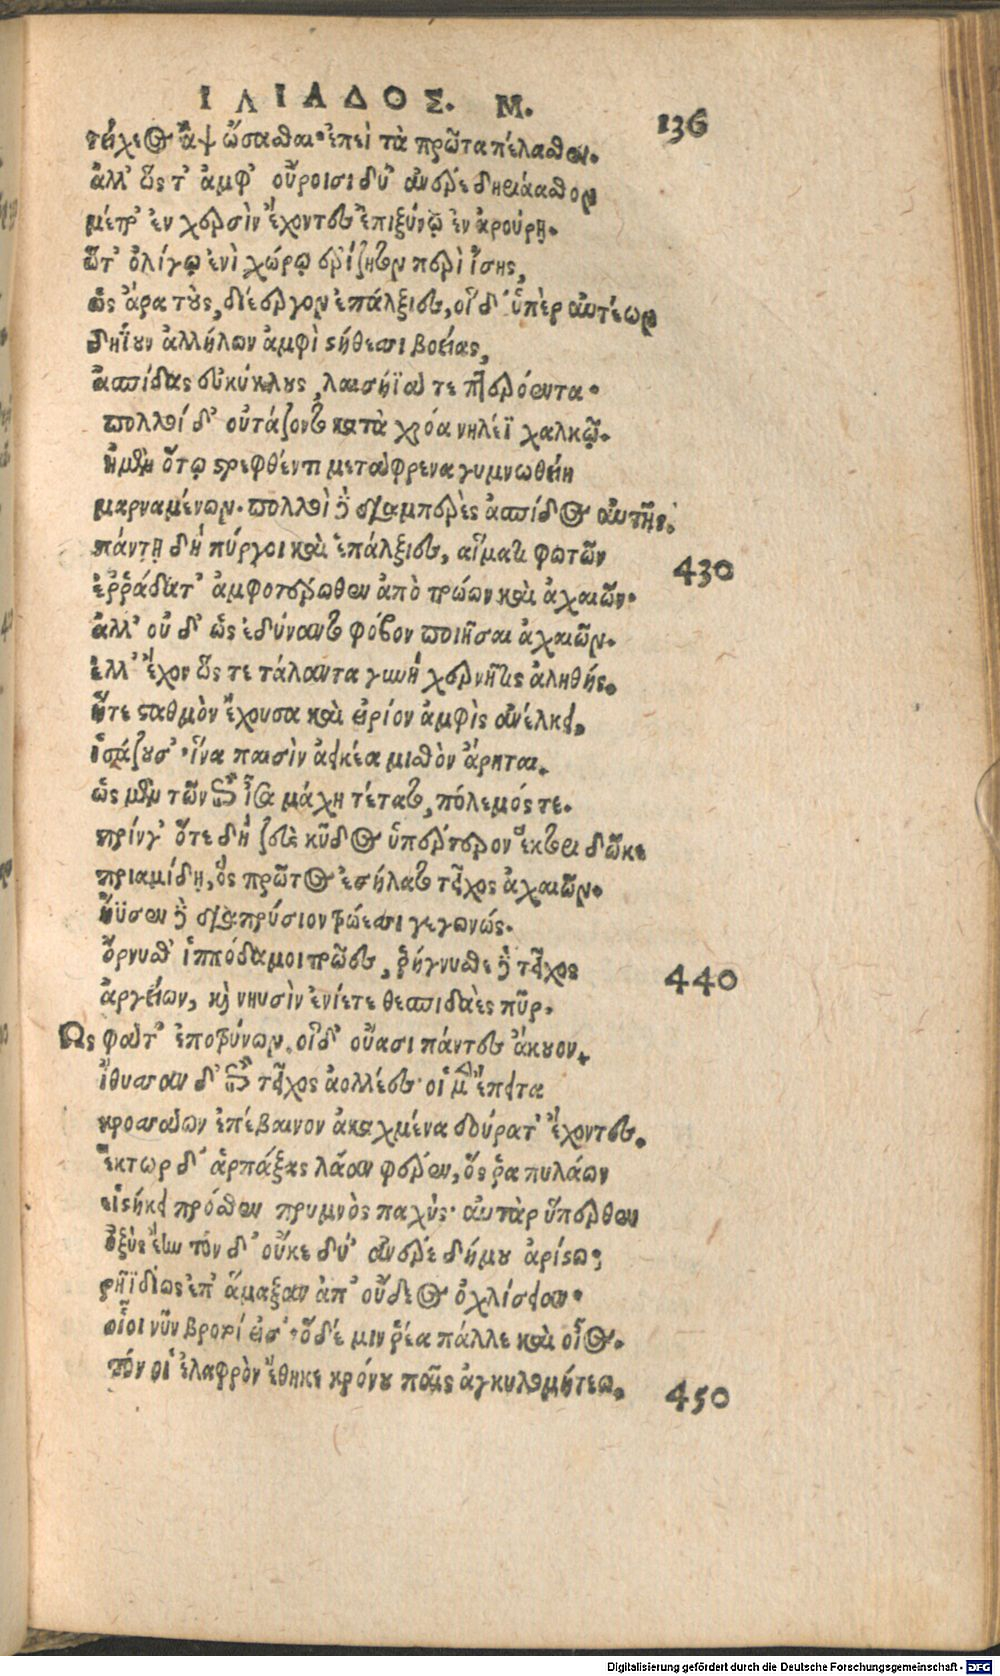 ΙΛΙΑΔΟΣ. Μ.
136
τείχεος ἂψ ὤσασθαι· ἐπεὶ τὰ πρῶτα πέλασθεν.
ἀλλ' ὥς τ' ἀμφ' οὔροισι δύ' ἀνέρε δηριάασθον
μέτρ' ἐν χερσὶν ἔχοντες ἐπιξύνῳ ἐν ἀρούρῃ.
ὥτ' ὀλίγῳ ἐνὶ χώρῳ ἐρίζητον περὶ ἴσης,
ὣς ἄρα τοὺς, διέεργον ἐπάλξιες, οἳ δ' ὑπὲρ αὐτέων
δῄουν ἀλλήλων ἀμφὶ στήθεσσι βοείας,
ἀσπίδας εὐκύκλους, λαισήϊά τε πτερόεντα.
πολλοὶ δ' οὐτάζοντο κατὰ χρόα νηλέϊ χαλκῷ.
ἠμὲν ὅτῳ στρεφθέντι μετάφρενα γυμνωθείη
μαρναμένων. πολλοὶ δὲ διαμπερὲς ἀσπίδος αὐτῆς.
πάντῃ δὴ πύργοι καὶ ἐπάλξιες, αἵματι φωτῶν
430
ἐῤῥάδατ' ἀμφοτέρωθεν ἀπὸ τρώων καὶ ἀχαιῶν.
ἀλλ' οὐ δ' ὣς ἐδύναντο φόβον ποιῆσαι ἀχαιῶν.
ἀλλ' ἔχον ὥς τε τάλαντα γυνὴ χερνῆτις ἀληθής.
ἥτε σταθμὸν ἔχουσα καὶ εἴριον ἀμφὶς ἀνέλκει,
ἰσάζουσ'· ἵνα παισὶν ἀεικέα μισθὸν ἄρηται.
ὣς μὲν τῶν ἐπὶ ἶσα μάχη τέτατο, πόλεμός τε.
πρίνγ' ὅτε δὴ ζεὺς κῦδος ὑπέρτερον ἕκτορι δῶκε
πριαμίδῃ, ὃς πρῶτος ἐσήλατο τεῖχος ἀχαιῶν.
ἤϋσεν δὲ διαπρύσιον τρώεσσι γεγωνώς.
ὄρνυσθ' ἱππόδαμοι τρῶες, ῥήγνυσθε δὲ τεῖχος
440
ἀργείων, καὶ νηυσὶν ἐνίετε θεσπιδαὲς πῦρ.
Ως φάτ' ἐποτρύνων. οἳ δ' οὔασι πάντες ἄκουον.
ἴθυσαν δ' ἐπὶ τεῖχος ἀολλέες· οἱ μὲν ἔπειτα
κροσσάων ἐπέβαινον ἀκαχμένα δούρατ' ἔχοντες.
ἕκτωρ δ' ἁρπάξας λᾶαν φέρεν, ὅς ῥα πυλάων
εἱστήκει πρόσθεν πρυμνὸς παχύς· αὐτὰρ ὕπερθεν
ὀξὺς ἔην τὸν δ' οὔκε δύ' ἀνέρε δήμου ἀρίστω,
ῥηϊδίως ἐπ' ἅμαξαν ἀπ' οὔδεος ὀχλίσειαν.
οἷοι νῦν βροτοί εἰσ'· ὁ δέ μιν ῥέα πάλλε καὶ οἶος.
τόν οἱ ἐλαφρὸν ἔθηκε κρόνου παῖς ἀγκυλομήτεω.
450
Digitalisierung gefördert durch die Deutsche Forschungsgemeinschaft - DFG